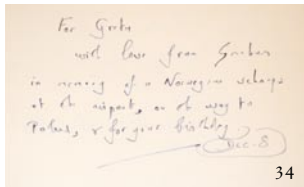 For Greta
with love from Graham
in memory of a Norwegian
at the airport, on the way to
& for your birthday
Dec. 8
34